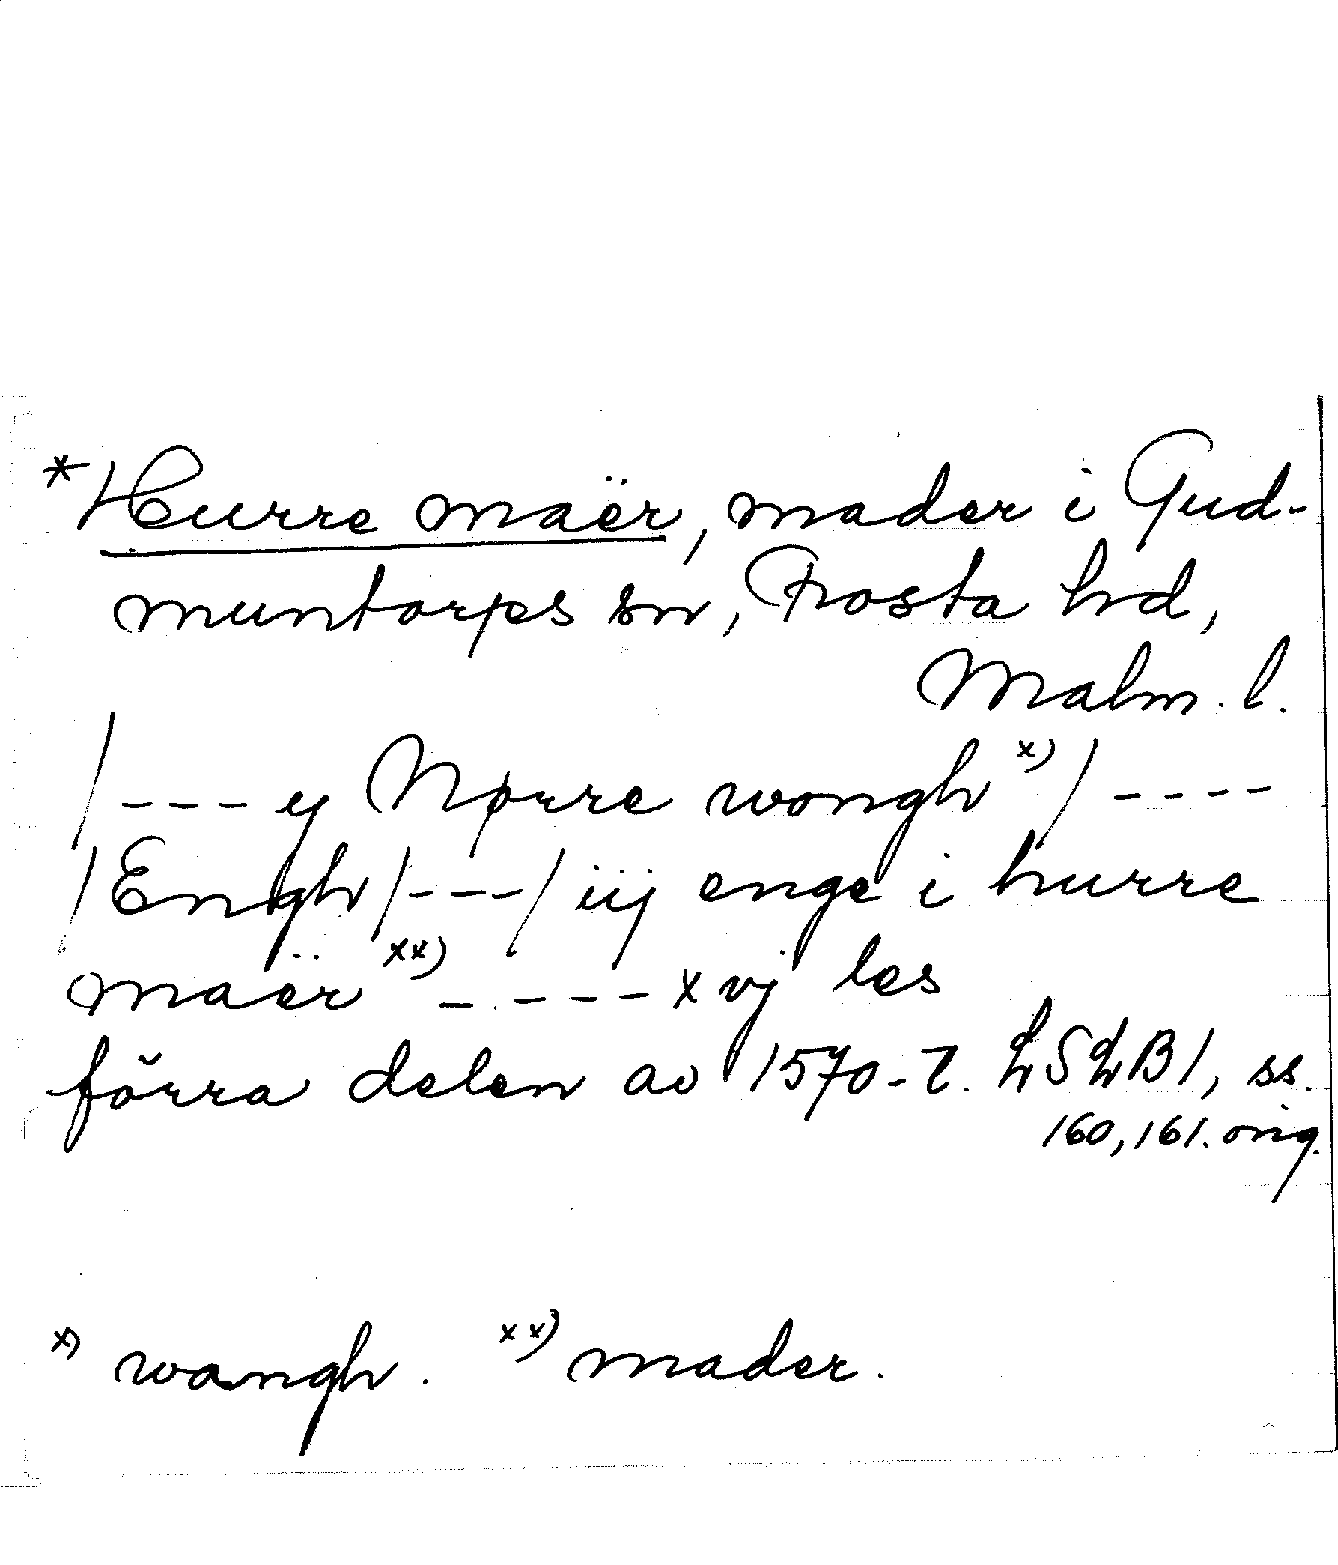 *Hurre maër, mader i Gud-
muntorps sn, Frosta hd,
Malm. l.
/ --- y Nørre wongh x) / ----
/Engh/---/ iij enge i hurre
maër xx) ----- xvj les
förra delen av 1570-t. LSLB1, ss.
160, 161. orig.
x) wangh. xx) mader.